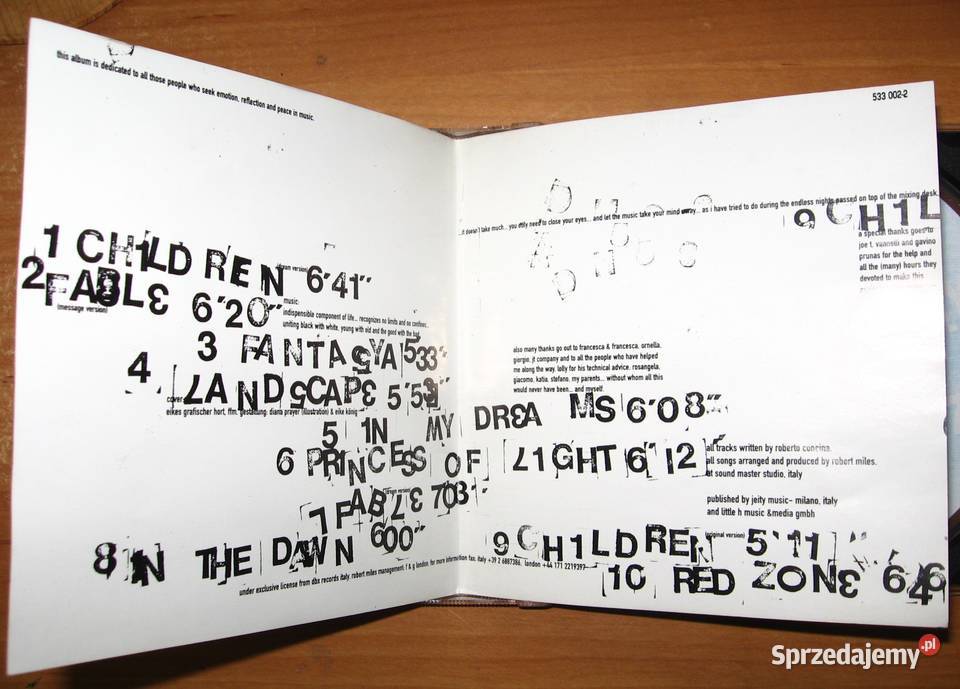 this album is dedicated to all those people who seek emotion, reflection and peace in music.
1 CHILDREN (dream version) 6'41"
2 FABLE 6'20"
(message version)
music:
indispensible component of life... recognizes no limits and no confines...
uniting black with white, young with old and the good with the bad.
3 FANTASYA 5'33"
4 LANDSCAPE 5'53"
cover:
eikes grafischer hort, ffm. gestaltung: diana prayer (illustration) & eike könig
5 IN MY DREAMS 6'08"
6 PRINCESS OF LIGHT 6'12"
7 FABLE (dream version) 7'03"
8 IN THE DAWN 6'00"
9 CHILDREN (original version) 5'11"
10 RED ZONE 6'46
under exclusive license from dbx records italy. robert miles management: f & g london. for more information fax. italy +39 2 6887386, london +44 171 2219397
533 002-2
...it doesn't take much... you only need to close your eyes... and let the music take your mind away... as i have tried to do during the endless nights passed on top of the mixing desk.
9 CHIL
a special thanks goes to
joe t. vannelli and gavino
prunas for the help and
all the (many) hours they
devoted to make this
also many thanks go out to francesca & francesca, ornella,
giorgio, jt company and to all the people who have helped
me along the way, lolly for his technical advice, rosangela,
giacomo, katia, stefano, my parents... without whom all this
would never have been... and myself.
all tracks written by roberto concina.
all songs arranged and produced by robert miles.
at sound master studio, italy
published by jeity music- milano, italy
and little h music &media gmbh
Sprzedajemy.pl